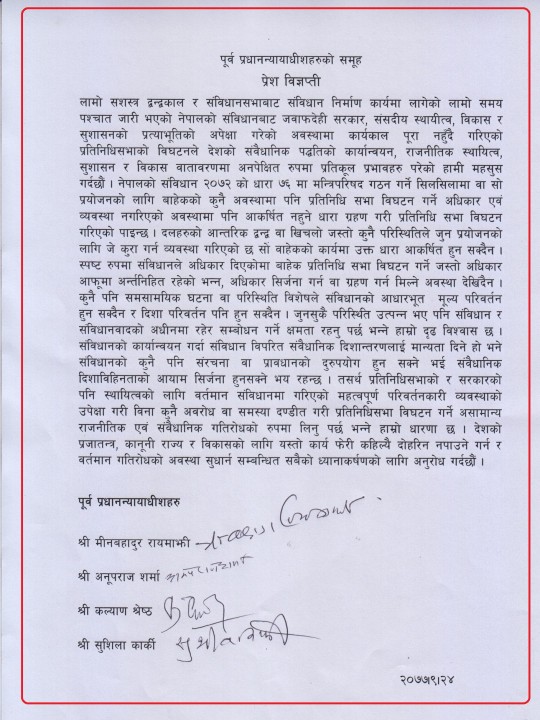 पूर्व प्रधानन्यायाधीशहरुको समूह
प्रेश विज्ञप्ती
लामो सशस्त्र द्वन्द्वकाल र संविधानसभाबाट संविधान निर्माण कार्यमा लागेको लामो समय
पश्चात जारी भएको नेपालको संविधानबाट जवाफदेही सरकार, संसदीय स्थायीत्व, विकास र
सुशासनको प्रत्याभूतिको अपेक्षा गरेको अवस्थामा कार्यकाल पूरा नहुँदै गरिएको
प्रतिनिधिसभाको विघटनले देशको संवैधानिक पद्धतिको कार्यान्वयन, राजनीतिक स्थायित्व,
सुशासन र विकास वातावरणमा अनपेक्षित रुपमा प्रतिकूल प्रभावहरु परेको हामी महसुस
गर्दछौं । नेपालको संविधान २०७२ को धारा ७६ मा मन्त्रिपरिषद गठन गर्ने सिलसिलामा वा सो
प्रयोजनको लागि बाहेकको कुनै अवस्थामा पनि प्रतिनिधि सभा विघटन गर्ने अधिकार एवं
व्यवस्था नगरिएको अवस्थामा पनि आकर्षित नहुने धारा ग्रहण गरी प्रतिनिधि सभा विघटन
गरिएको पाइन्छ । दलहरुको आन्तरिक द्वन्द्व वा खिचलो जस्तो कुनै परिस्थितिले जुन प्रयोजनको
लागि जे कुरा गर्न व्यवस्था गरिएको छ सो बाहेकको कार्यमा उक्त धारा आकर्षित हुन सक्दैन ।
स्पष्ट रुपमा संविधानले अधिकार दिएकोमा बाहेक प्रतिनिधि सभा विघटन गर्ने जस्तो अधिकार
आफूमा अर्न्तनिहित रहेको भन्न, अधिकार सिर्जना गर्न वा ग्रहण गर्न मिल्ने अवस्था देखिदैन ।
कुनै पनि समसामयिक घटना वा परिस्थिति विशेषले संविधानको आधारभूत मूल्य परिवर्तन
हुन सक्दैन र दिशा परिवर्तन पनि हुन सक्दैन । जुनसुकै परिस्थिति उत्पन्न भए पनि संविधान र
संविधानवादको अधीनमा रहेर सम्बोधन गर्ने क्षमता रहनु पर्छ भन्ने हाम्रो दृढ विश्वास छ ।
संविधानको कार्यान्वयन गर्दा संविधान विपरित संवैधानिक दिशान्तरणलाई मान्यता दिने हो भने
संविधानको कुनै पनि संरचना वा प्रावधानको दुरुपयोग हुन सक्ने भई संवैधानिक
दिशाविहिनताको आयाम सिर्जना हुनसक्ने भय रहन्छ । तसर्थ प्रतिनिधिसभाको र सरकारको
पनि स्थायित्वको लागि वर्तमान संविधानमा गरिएको महत्वपूर्ण परिवर्तनकारी व्यवस्थाको
उपेक्षा गरी विना कुनै अवरोध वा समस्या दण्डीत गरी प्रतिनिधिसभा विघटन गर्ने असामान्य
राजनीतिक एवं संवैधानिक गतिरोधको रुपमा लिनु पर्छ भन्ने हाम्रो धारणा छ । देशको
प्रजातन्त्र, कानूनी राज्य र विकासको लागि यस्तो कार्य फेरी कहिल्यै दोहरिन नपाउने गर्न र
वर्तमान गतिरोधको अवस्था सुधार्न सम्बन्धित सबैको ध्यानाकर्षणको लागि अनुरोध गर्दछौं ।
पूर्व प्रधानन्यायाधीशहरु
श्री मीनबहादुर रायमाझी
श्री अनूपराज शर्मा
श्री कल्याण श्रेष्ठ
श्री सुशिला कार्की
२०७७।९।२४